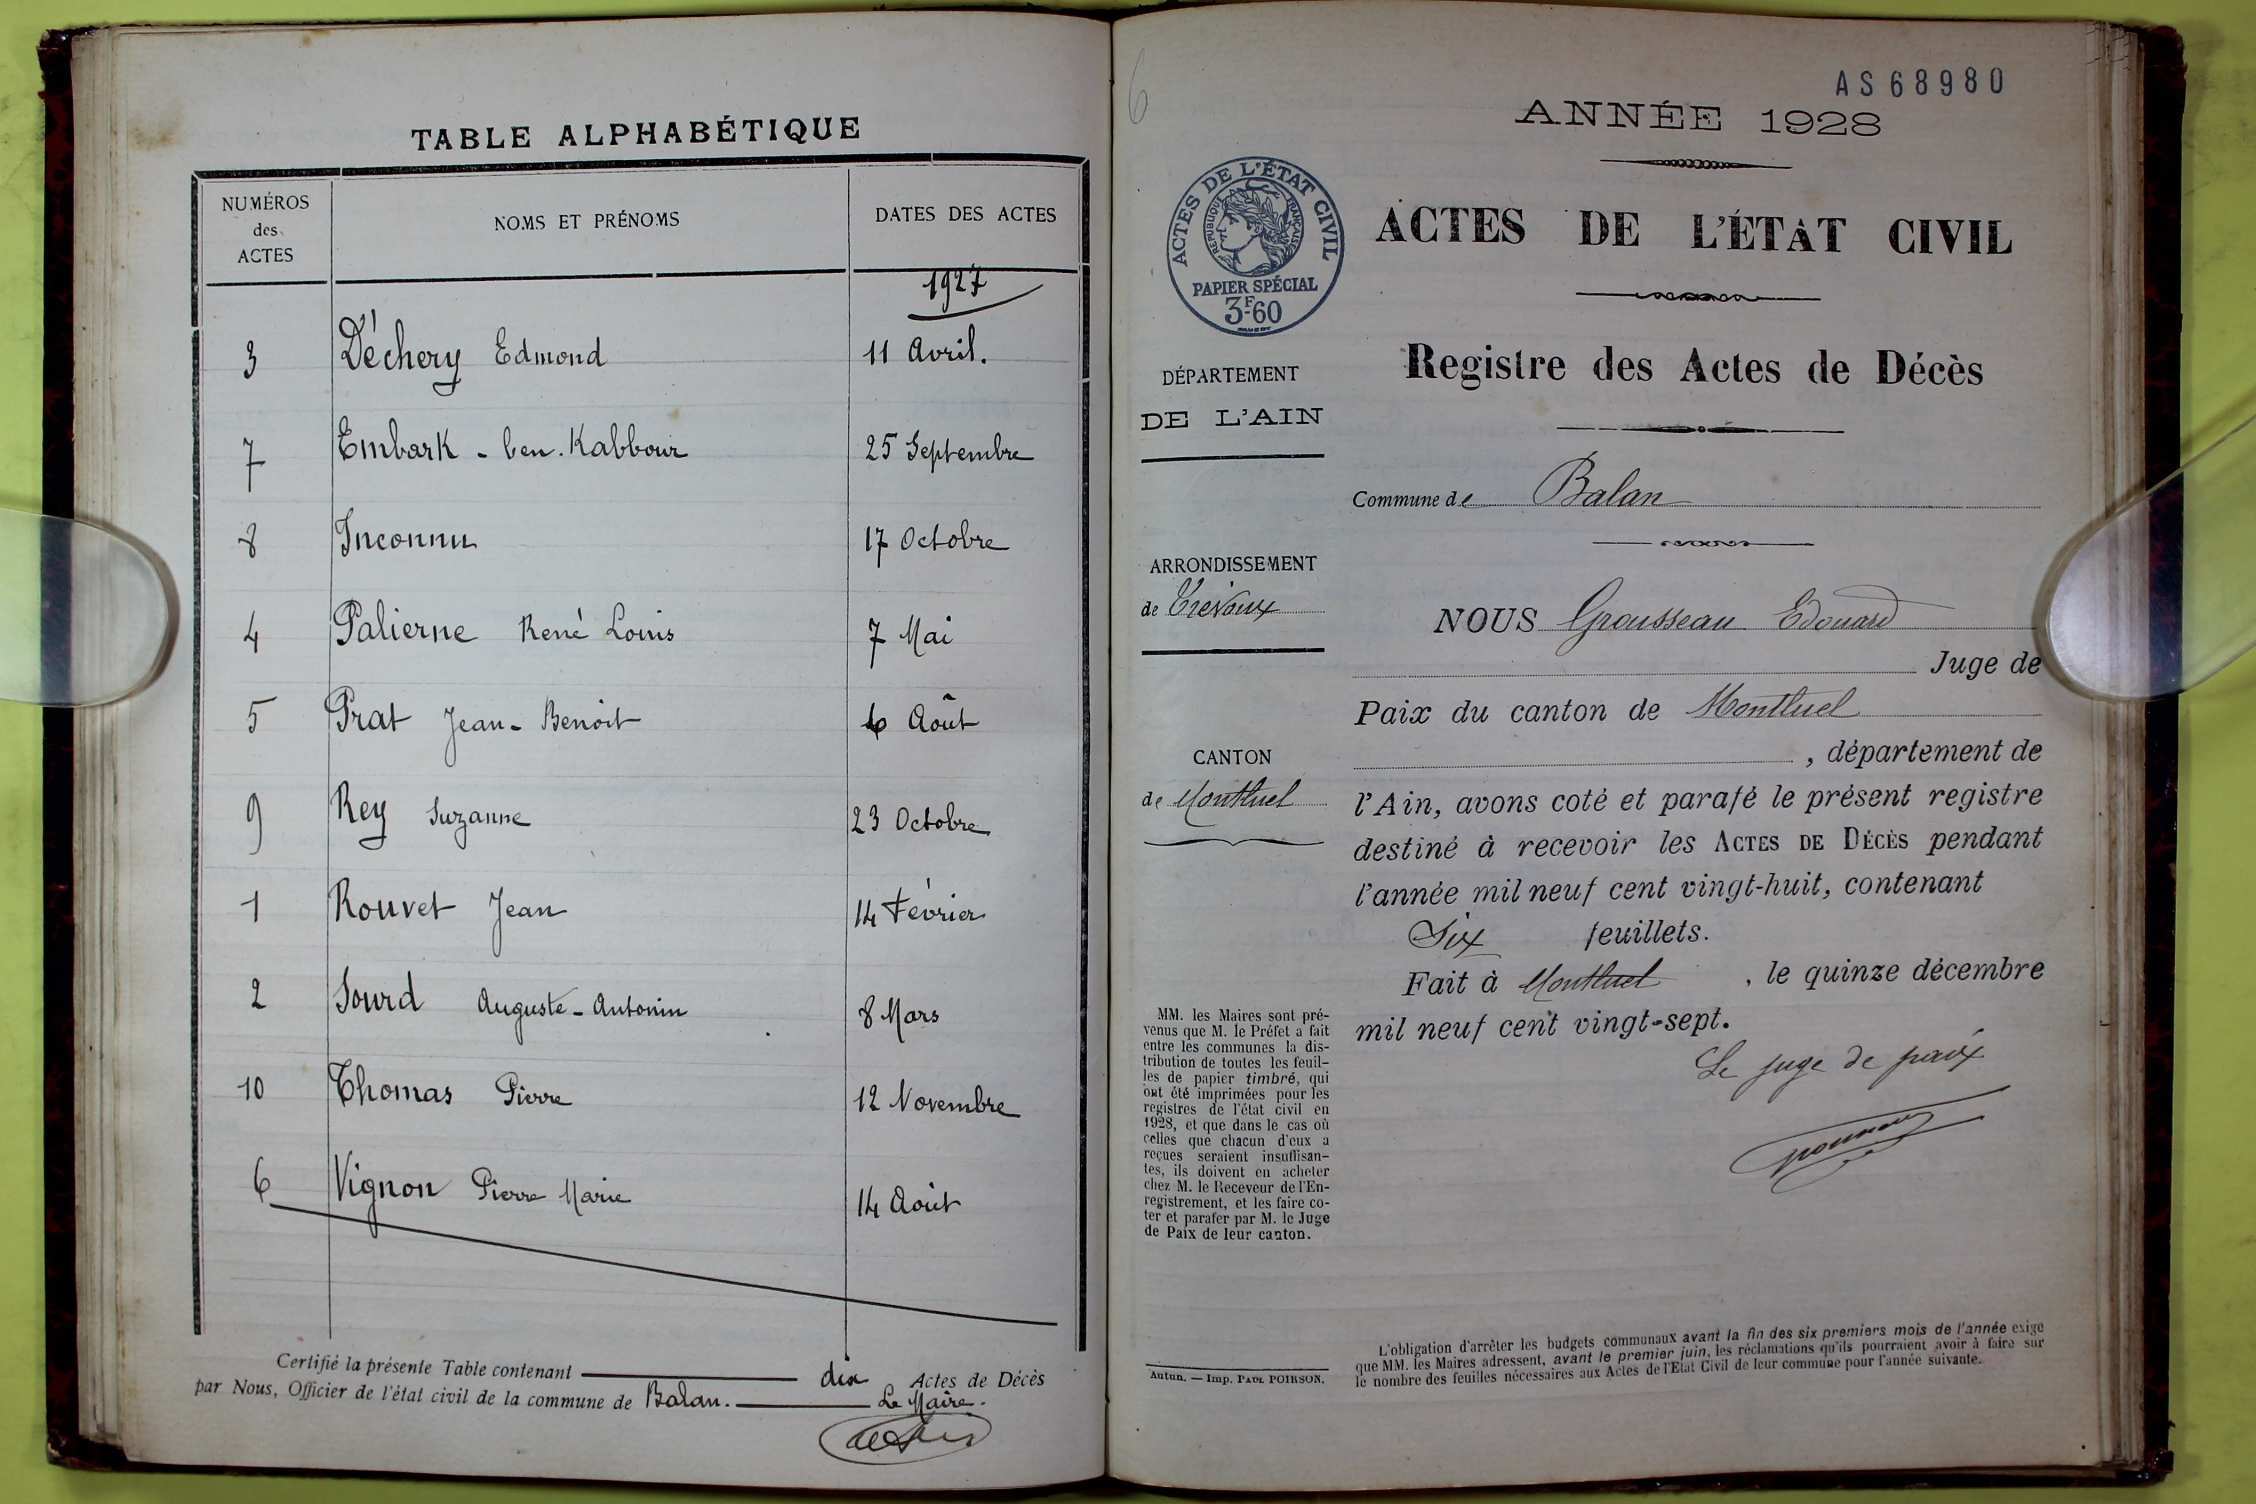 TABLE ALPHABÉTIQUE
NUMÉROS
des
ACTES
NOMS ET PRÉNOMS
DATES DES ACTES
1927
3 Déchery Edmond 11 Avril.
7 Embark - ben. Kabbour 25 Septembre
8 Inconnu 17 Octobre
4 Palierne René Louis 7 Mai
5 Prat Jean-Benoit 6 Août
9 Rey Suzanne 23 Octobre
1 Rouvet Jean 14 Février
2 Sourd Auguste-Antonin 8 Mars
10 Thomas Pierre 12 Novembre
6 Vignon Pierre Marie 14 Août
Certifié la présente Table contenant dix Actes de Décès
par Nous, Officier de l'état civil de la commune de Balan. Le Maire.
6
AS68980
ANNÉE 1928
ACTES DE L'ÉTAT CIVIL
RÉPUBLIQUE FRANÇAISE
PAPIER SPÉCIAL
3F60
ACTES DE L'ÉTAT CIVIL
Registre des Actes de Décès
DÉPARTEMENT
DE L'AIN
Commune de Balan
ARRONDISSEMENT
de Trévoux
CANTON
de Montluel
NOUS Grousseau Edouard
Juge de
Paix du canton de Montluel
, département de
l'Ain, avons coté et parafé le présent registre
destiné à recevoir les ACTES DE DÉCÈS pendant
l'année mil neuf cent vingt-huit, contenant
Six feuillets.
Fait à Montluel, le quinze décembre
mil neuf cent vingt-sept.
Le juge de paix
MM. les Maires sont pré-
venus que M. le Préfet a fait
entre les communes la dis-
tribution de toutes les feuil-
les de papier timbré, qui
ont été imprimées pour les
registres de l'état civil en
1928, et que dans le cas où
celles que chacun d'eux a
reçues seraient insuffisan-
tes, ils doivent en acheter
chez M. le Receveur de l'En-
registrement, et les faire co-
ter et parafer par M. le Juge
de Paix de leur canton.
Autun. — Imp. PAUL POIRSON.
L'obligation d'arrêter les budgets communaux avant la fin des six premiers mois de l'année exige
que MM. les Maires adressent, avant le premier juin, les réclamations qu'ils pourraient avoir à faire sur
le nombre des feuilles nécessaires aux Actes de l'Etat Civil de leur commune pour l'année suivante.